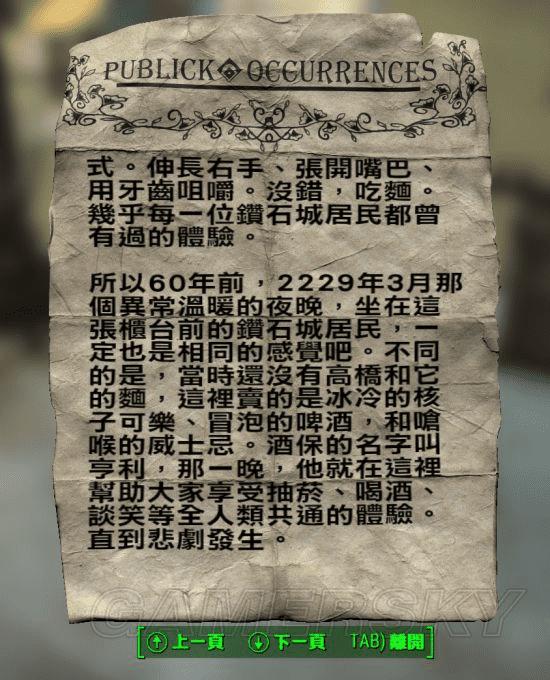 PUBLICK OCCURRENCES
式。伸長右手、張開嘴巴、
用牙齒咀嚼。沒錯，吃麵。
幾乎每一位鑽石城居民都曾
有過的體驗。
所以60年前，2229年3月那
個異常溫暖的夜晚，坐在這
張櫃台前的鑽石城居民，一
定也是相同的感覺吧。不同
的是，當時還沒有高橋和它
的麵，這裡賣的是冰冷的核
子可樂、冒泡的啤酒，和嗆
喉的威士忌。酒保的名字叫
亨利，那一晚，他就在這裡
幫助大家享受抽菸、喝酒、
談笑等全人類共通的體驗。
直到悲劇發生。
GAMERSKY
上一頁 下一頁 TAB) 離開